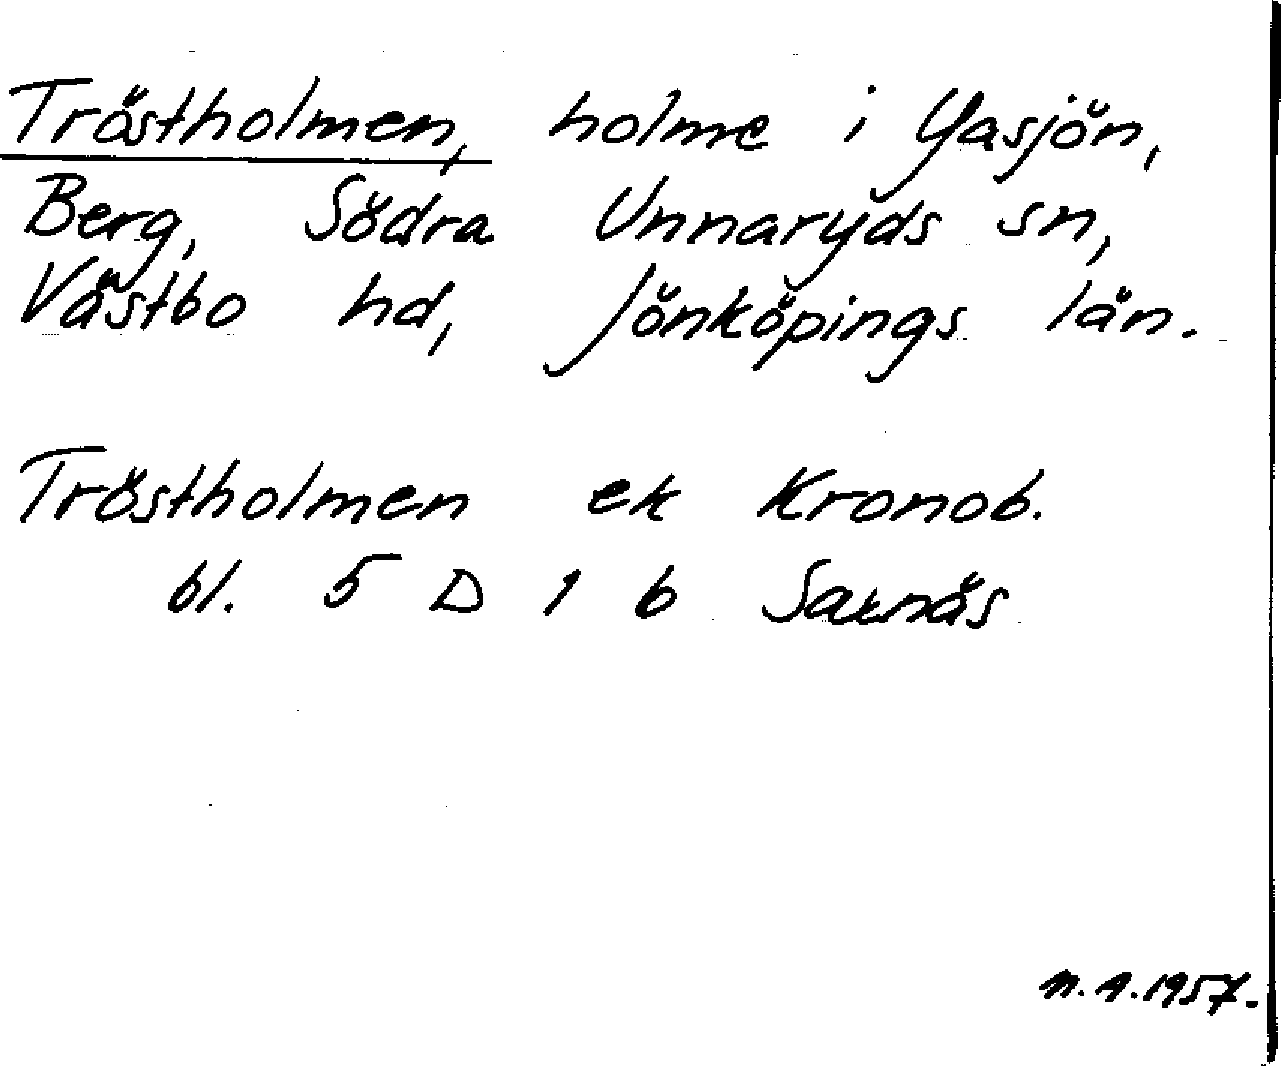 Tröstholmen, holme i Yasjön,
Berg, Södra Unnaryds sn,
Västbo hd, Jönköpings län.
Tröstholmen ek Kronob.
bl. 5 D 1 b Saxnäs
N.A.1957.